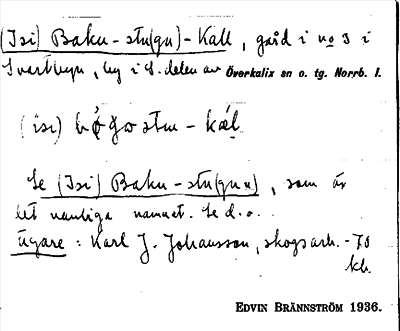 (Isi) Baku-stu(gu)-Kall, gård i no 3 i
Svartbyn, by i S. delen av Överkalix sn o. tg. Norrb. l.
(isi) bǿgostu - kǽl
Se (Isi) Baku-stu(gun), som är
det vanliga namnet. Se d.o.
Ägare: Karl J. Johansson, skogsarb. -70
kb.
EDVIN BRÄNNSTRÖM 1936.